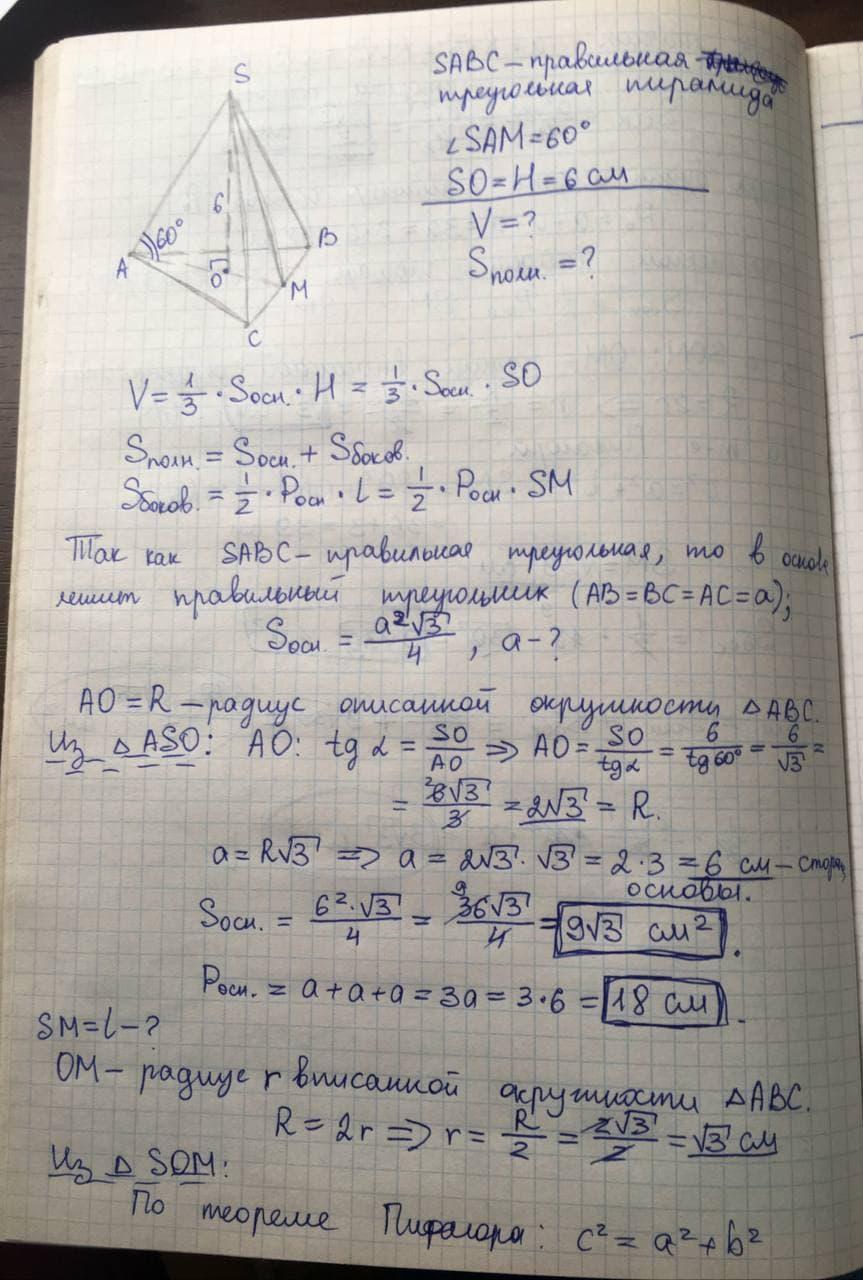 S
6
60°
A
O
B
M
C
SABC – правильная
треугольная пирамида
∠SAM=60°
SO=H=6 см
V=?
Sполн. =?
V= 1/3 · Sосн. · H = 1/3 · Sосн. · SO
Sполн. = Sосн. + Sбоков.
Sбоков. = 1/2 · Pосн · l = 1/2 · Pосн · SM
Так как SABC – правильная треугольная, то в основе
лежит правильный треугольник (AB=BC=AC=a);
Sосн. = a²√3/4 , a – ?
AO=R – радиус описанной окружности △ABC.
Из △ASO: AO: tg α = SO/AO => AO = SO/tg α = 6/tg 60° = 6/√3 =
= 6√3/3 = 2√3 = R.
a = R√3 => a = 2√3 · √3 = 2·3 = 6 см – сторона
основы.
Sосн. = 6²·√3/4 = 36√3/4 = 9√3 см².
Pосн. = a+a+a = 3a = 3·6 = 18 см.
SM=l–?
OM – радиус r вписанной окружности △ABC.
R = 2r => r = R/2 = 2√3/2 = √3 см
Из △SOM:
По теореме Пифагора: c² = a² + b²